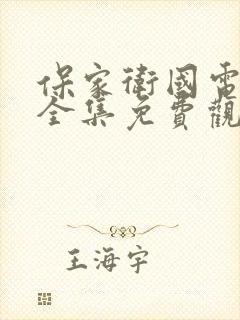 保家衛國電
全集免費觀
王海宇